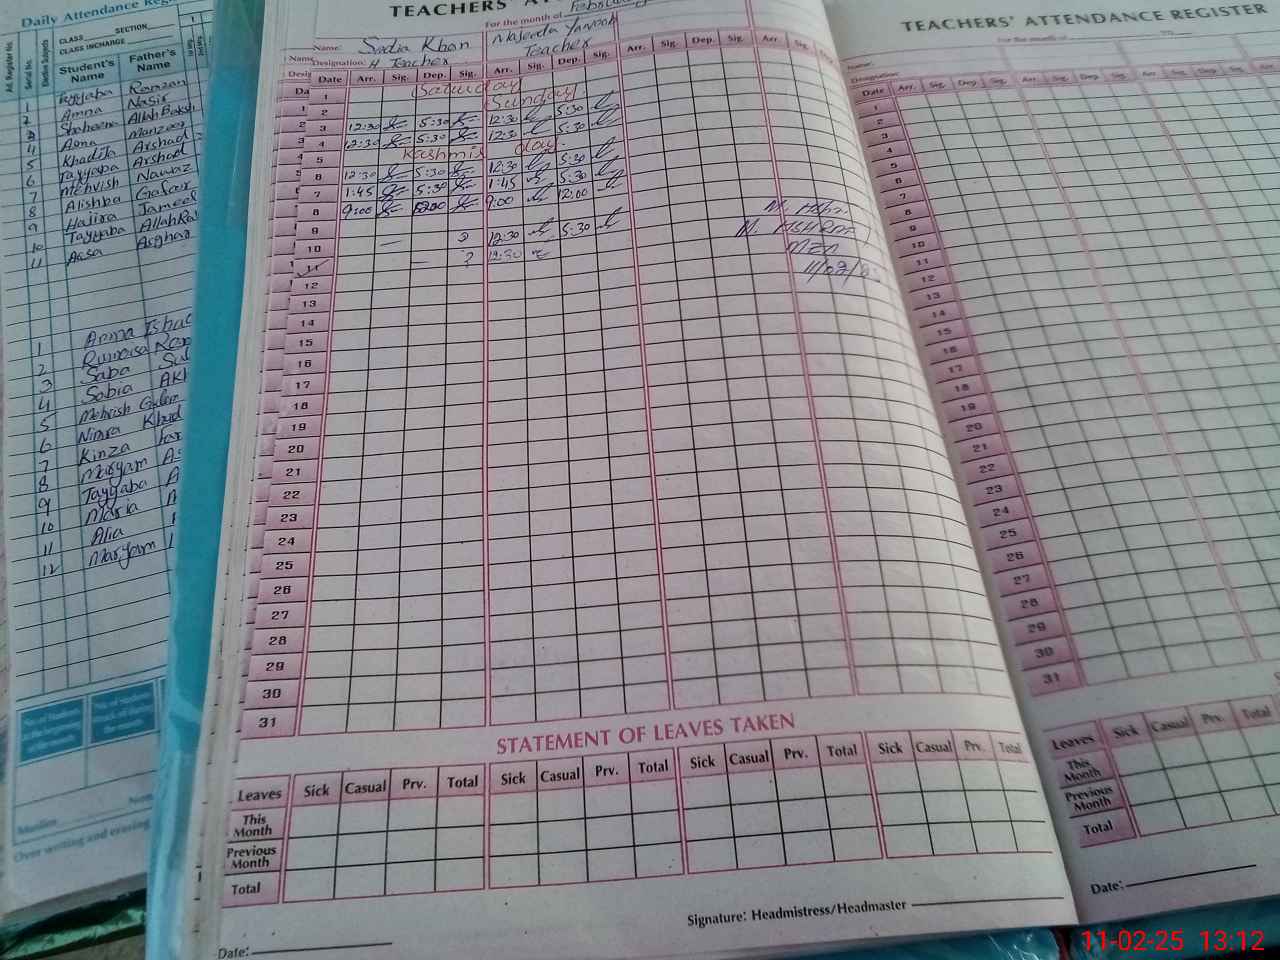 Daily Attendance Reg
CLASS SECTION
CLASS INCHARGE
Ad. Register No.
Serial No.
Elective Subjects
Student's Name
Father's Name
1 Tayyaba Ramzan
2 Amna Nasir
3 Shaheena Allah Baksh
4 Asna Manzoor
5 Khadija Arshad
6 Tayyaba Arshad
7 Mehvish Nawaz
8 Alishba Gafoor
9 Hajira Jameel
10 Tayyaba AllahRa
11 Aasa Asghar
1 Amna Ishac
2 Rumaisa Ram
3 Saba Sul
4 Sobia AKh
5 Mehvish Gulam
6 Nimra Khad
7 Kinza Far
8 Maryam As
9 Tayyaba A
10 Maria M
11 Alia
12 Maryam
Over writing and erasing
TEACHERS' AT
For the month of February
Name: Sadia Khan Majeeda Yanoos
Designation: H Teacher Teacher
Date Arr. Sig. Dep. Sig. Arr. Sig. Dep. Sig. Arr. Sig. Dep. Sig. Arr. Sig. Dep.
1 Saturday
2 Sunday
3 12:30 5:30 12:30 5:30
4 12:30 5:30 12:30 5:30
5 Kashmir day.
6 12:30 5:30 12:30 5:30
7 1:45 5:30 1:45 5:30
8 9:00 12:00 9:00 12:00
9
10 — ? 12:30 5:30
11 — ? 12:30
M. ASHRAF
MEA
11/02/25
12
13
14
15
16
17
18
19
20
21
22
23
24
25
26
27
28
29
30
31
STATEMENT OF LEAVES TAKEN
Leaves Sick Casual Prv. Total Sick Casual Prv. Total Sick Casual Prv. Total Sick Casual Prv. Total
This Month
Previous Month
Total
Signature: Headmistress/Headmaster
Date:
TEACHERS' ATTENDANCE REGISTER
For the month of
Name:
Designation:
Date Arr. Sig. Dep. Sig. Arr. Sig. Dep. Sig. Arr.
1
2
3
4
5
6
7
8
9
10
11
12
13
14
15
16
17
18
19
20
21
22
23
24
25
26
27
28
29
30
31
Leaves Sick Casual Prv. Total
This Month
Previous Month
Total
Date:
11-02-25 13:12